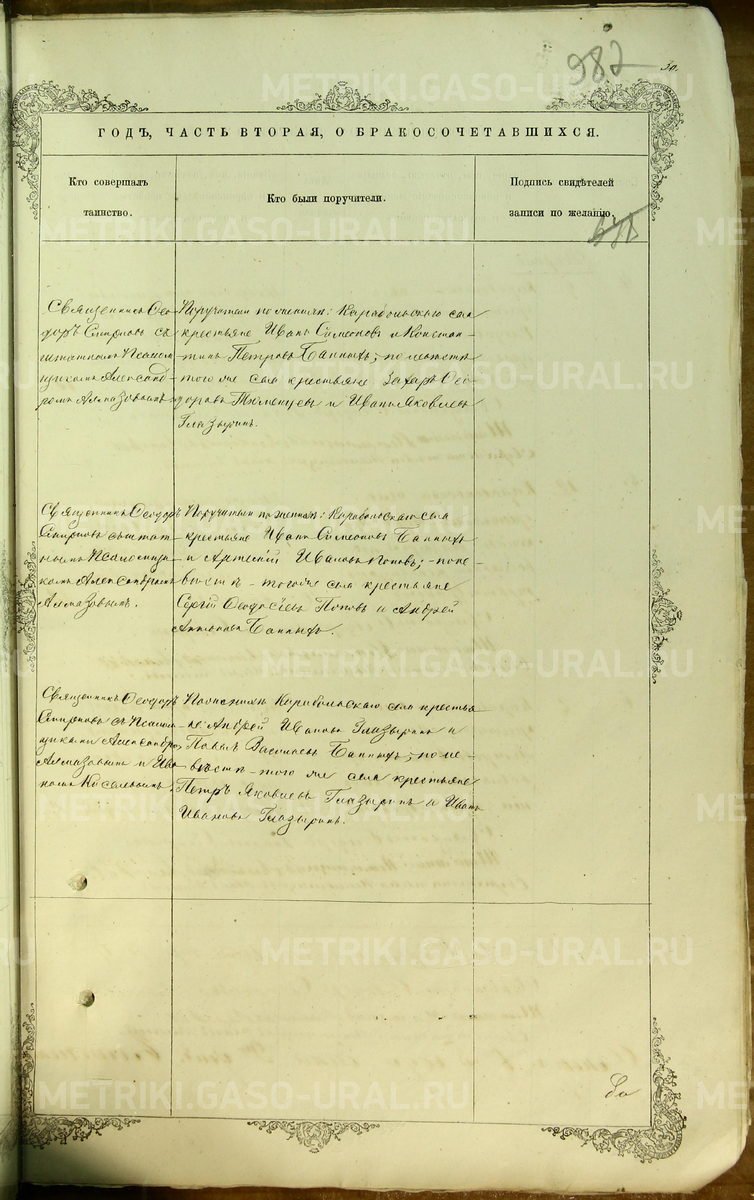 987
50.
ГОДЪ, ЧАСТЬ ВТОРАЯ, О БРАКОСОЧЕТАВШИХСЯ.
Кто совершалъ
таинство.
Кто были поручители.
Подпись свидѣтелей
записи по желанію.
Священникъ Ѳео-
доръ Смирновъ съ
штатнымъ Псалом-
щикомъ Александ-
ромъ Алмазовымъ.
Поручители по женихѣ: Карабольскаго села
крестьяне Иванъ Симеоновъ и Констан-
тинъ Петровъ Банныхъ; по невѣстѣ
того же села крестьяне Захаръ Ѳео-
доровъ и Иванъ Яковлевъ
Глазыринъ.
Священникъ Ѳеодоръ
Смирновъ съ штат-
нымъ Псаломщи-
комъ Александромъ
Алмазовымъ.
Поручители по женихѣ: Карабольскаго села
крестьяне Иванъ Симеоновъ Банныхъ
и Артемій Ивановъ Поповъ; по не-
вѣстѣ - того же села крестьяне
Сергій Ѳеодосіевъ Поповъ и Андрей
Банныхъ.
Священникъ Ѳеодоръ
Смирновъ съ Псалом-
щиками Александромъ
Алмазовымъ и Ива-
номъ
По женихѣ Карабольскаго села крестья-
не Андрей Ивановъ Глазыринъ и
Павелъ Васильевъ Банныхъ; по не-
вѣстѣ - того же села крестьяне
Петръ Яковлевъ Глазыринъ и Иванъ
Ивановъ Глазыринъ.
METRIKI.GASO-URAL.RU